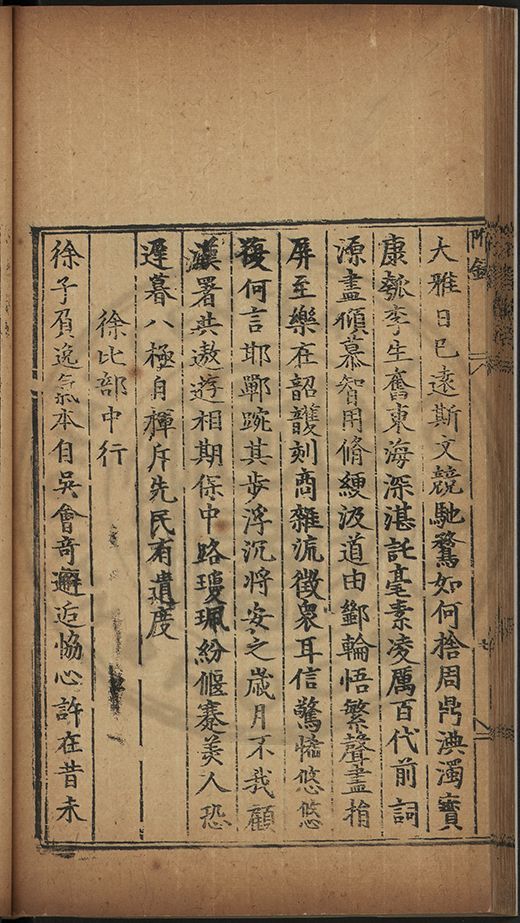 附錄
大雅日已遠斯文競馳騖如何捨周鼎淟濁寶
康瓠李生奮東海深湛託毫素凌厲百代前詞
源盡傾慕智用脩綆汲道由斵輪悟繁聲盡捐
屏至樂在韶頀刻商雜流徵衆耳信驚怖悠悠
復何言邯鄲踠其步浮沉將安之歲月不我顧
漢署共遨遊相期保中路瓊珮紛偃蹇美人恐
遲暮八極自揮斥先民有遺度
徐比部中行
徐子負逸氣本自吳會奇邂逅恊心許在昔未